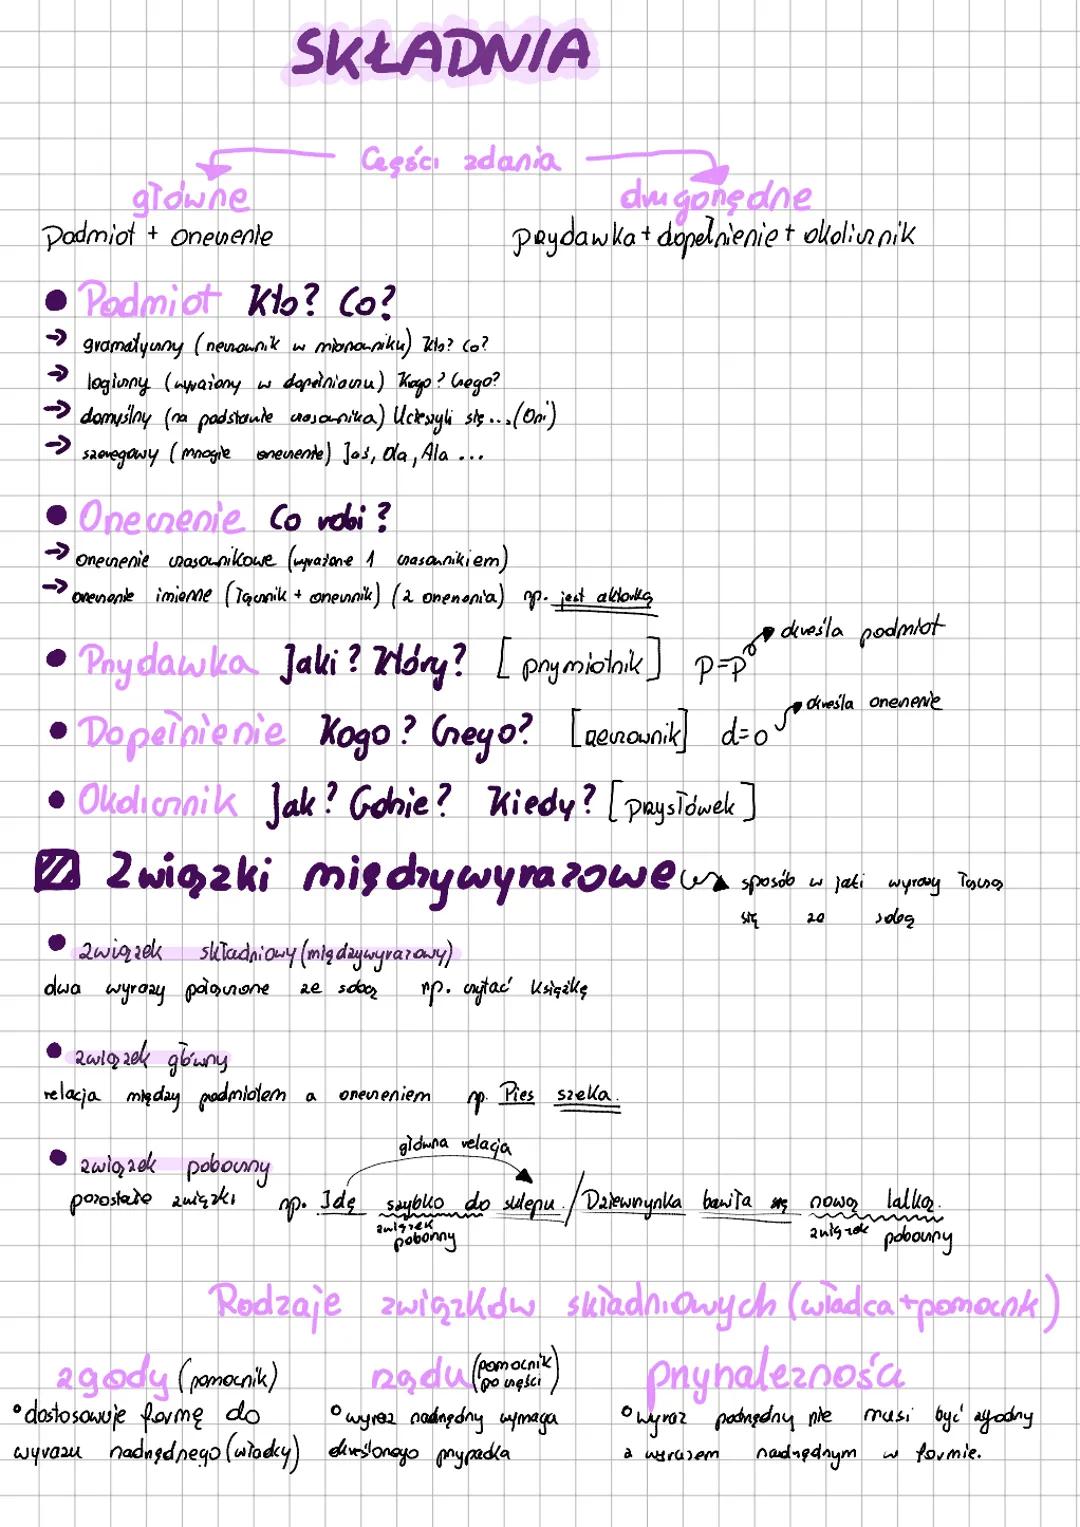 SKŁADNIA
Części zdania
główne drugorzędne
Podmiot + orzeczenie przydawka + dopełnienie + okolicznik
• Podmiot Kto? Co?
→ gramatyczny (rzeczownik w mianowniku) Kto? Co?
→ logiczny (wyrażony w dopełniaczu) Kogo? Czego?
→ domyślny (na podstawie czasownika) Ucieszyli się...(Oni)
→ szeregowy (mnogie orzeczenie) Jaś, Ola, Ala ...
• Orzeczenie Co robi?
→ orzeczenie czasownikowe (wyrażone 1 czasownikiem)
→ orzeczenie imienne (łącznik + orzecznik) (2 orzeczenia) np. jest aktorką
• Przydawka Jaki? Który? [przymiotnik] p=p określa podmiot
• Dopełnienie Kogo? Czego? [rzeczownik] d=o określa orzeczenie
• Okolicznik Jak? Gdzie? Kiedy? [przysłówek]
Związki międzywyrazowe sposób w jaki wyrazy łączą
się ze sobą
• związek składniowy (międzywyrazowy)
dwa wyrazy połączone ze sobą np. czytać książkę
• związek główny
relacja między podmiotem a orzeczeniem np. Pies szczeka.
główna relacja
• związek poboczny
pozostałe związki np. Idę szybko do sklepu. / Dziewczynka bawiła się nową lalką.
związek poboczny związek poboczny
Rodzaje związków składniowych (władca + pomocnik)
zgody (pomocnik) rządu (pomocnik po części) przynależności
° dostosowuje formę do ° wyraz nadrzędny wymaga ° wyraz podrzędny nie musi być zgodny
wyrazu nadrzędnego (władcy) określonego przypadka z wyrazem nadrzędnym w formie.